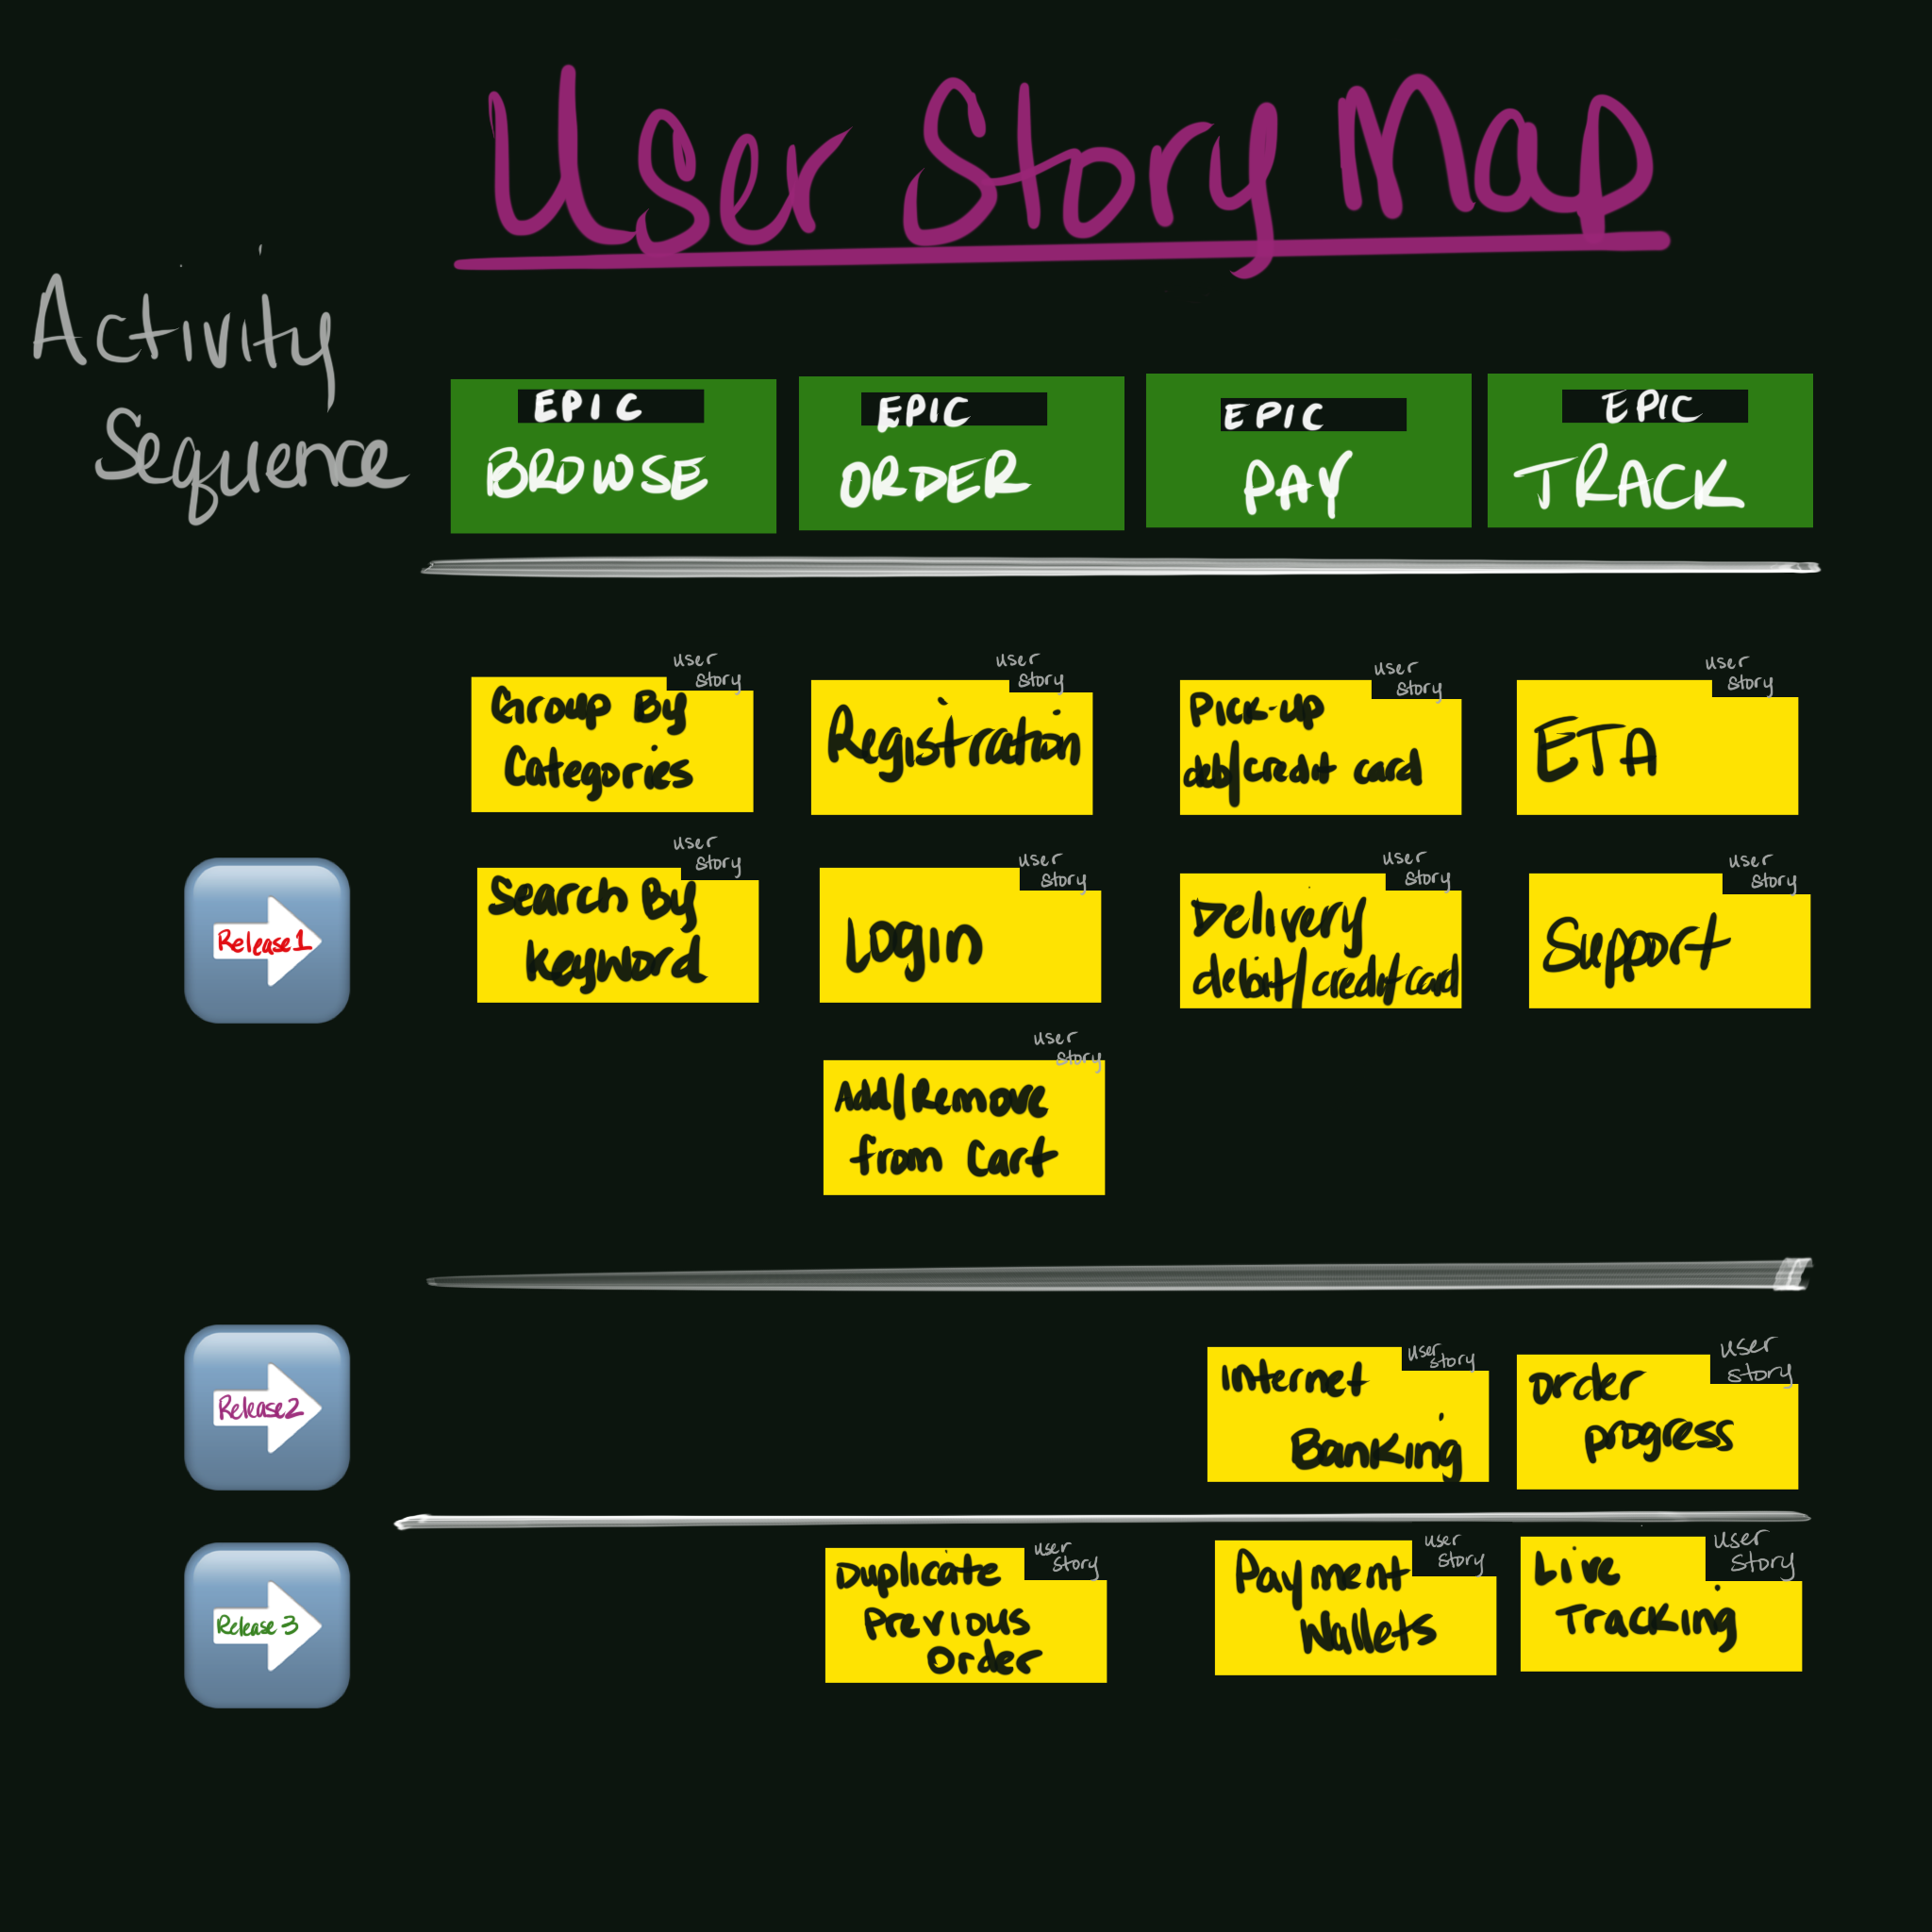 User Story Map
Activity
Sequence
EPIC
BROWSE
EPIC
ORDER
EPIC
PAY
EPIC
TRACK
user
story
Group By
Categories
user
story
Registration
user
story
Pick-up
deb/credit card
user
story
ETA
Release 1
user
story
Search By
Keyword
user
story
Login
user
story
Delivery
debit/credit card
user
story
Support
user
story
Add/Remove
from Cart
Release 2
user
story
Internet
Banking
user
story
order
progress
Release 3
user
story
Duplicate
Previous
Order
user
story
Payment
Wallets
user
story
Live
Tracking